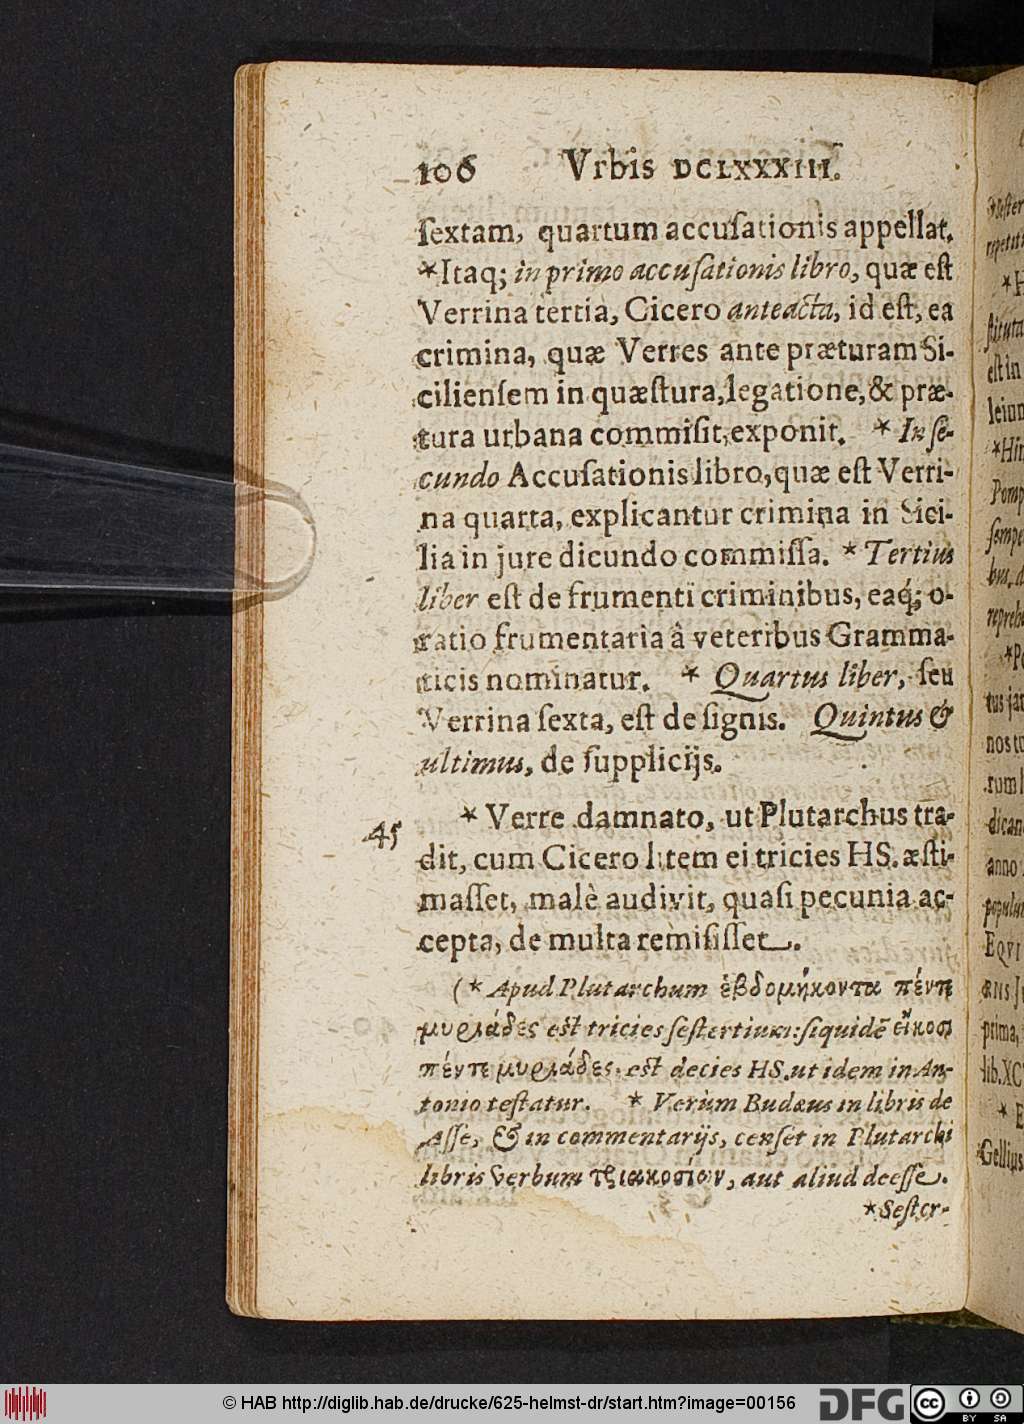 106 Vrbis DCLXXXIII.
ſextam, quartum accuſationis appellat.
*Itaq; in primo accuſationis libro, quæ eſt
Verrina tertia, Cicero anteacta, id eſt, ea
crimina, quæ Verres ante præturam Si-
cilienſem in quæſtura, legatione, & præ-
tura urbana commiſit, exponit. * In ſe-
cundo Accuſationis libro, quæ eſt Verri-
na quarta, explicantur crimina in Sici-
lia in jure dicundo commiſſa. * Tertius
liber eſt de frumenti criminibus, eaq́; o-
ratio frumentaria â veteribus Gramma-
ticis nominatur. * Quartus liber, ſeu
Verrina ſexta, eſt de ſignis. Quintus &
ultimus, de ſupplicijs.
45
* Verre damnato, ut Plutarchus tra-
dit, cum Cicero litem ei tricies HS. æſti-
maſſet, malè audivit, quaſi pecunia ac-
cepta, de multa remiſiſſet.
(* Apud Plutarchum ἑβδομήκοντα πέντε
μυριάδες eſt tricies ſeſtertium: ſiquidē εἴκοσι
πέντε μυριάδες, eſt decies HS. ut idem in An-
tonio teſtatur. * Verùm Budæus in libris de
Aſſe, & in commentarijs, cenſet in Plutarchi
libris verbum τριακοσίων, aut aliud deeſſe.
*Seſter-
leiun
*Hin
Pomp
ſempe
nos tu
dican
anno
popului
EQVI
prima,
lib. XC
Gellius
© HAB http://diglib.hab.de/drucke/625-helmst-dr/start.htm?image=00156
DFG
cc
BY SA